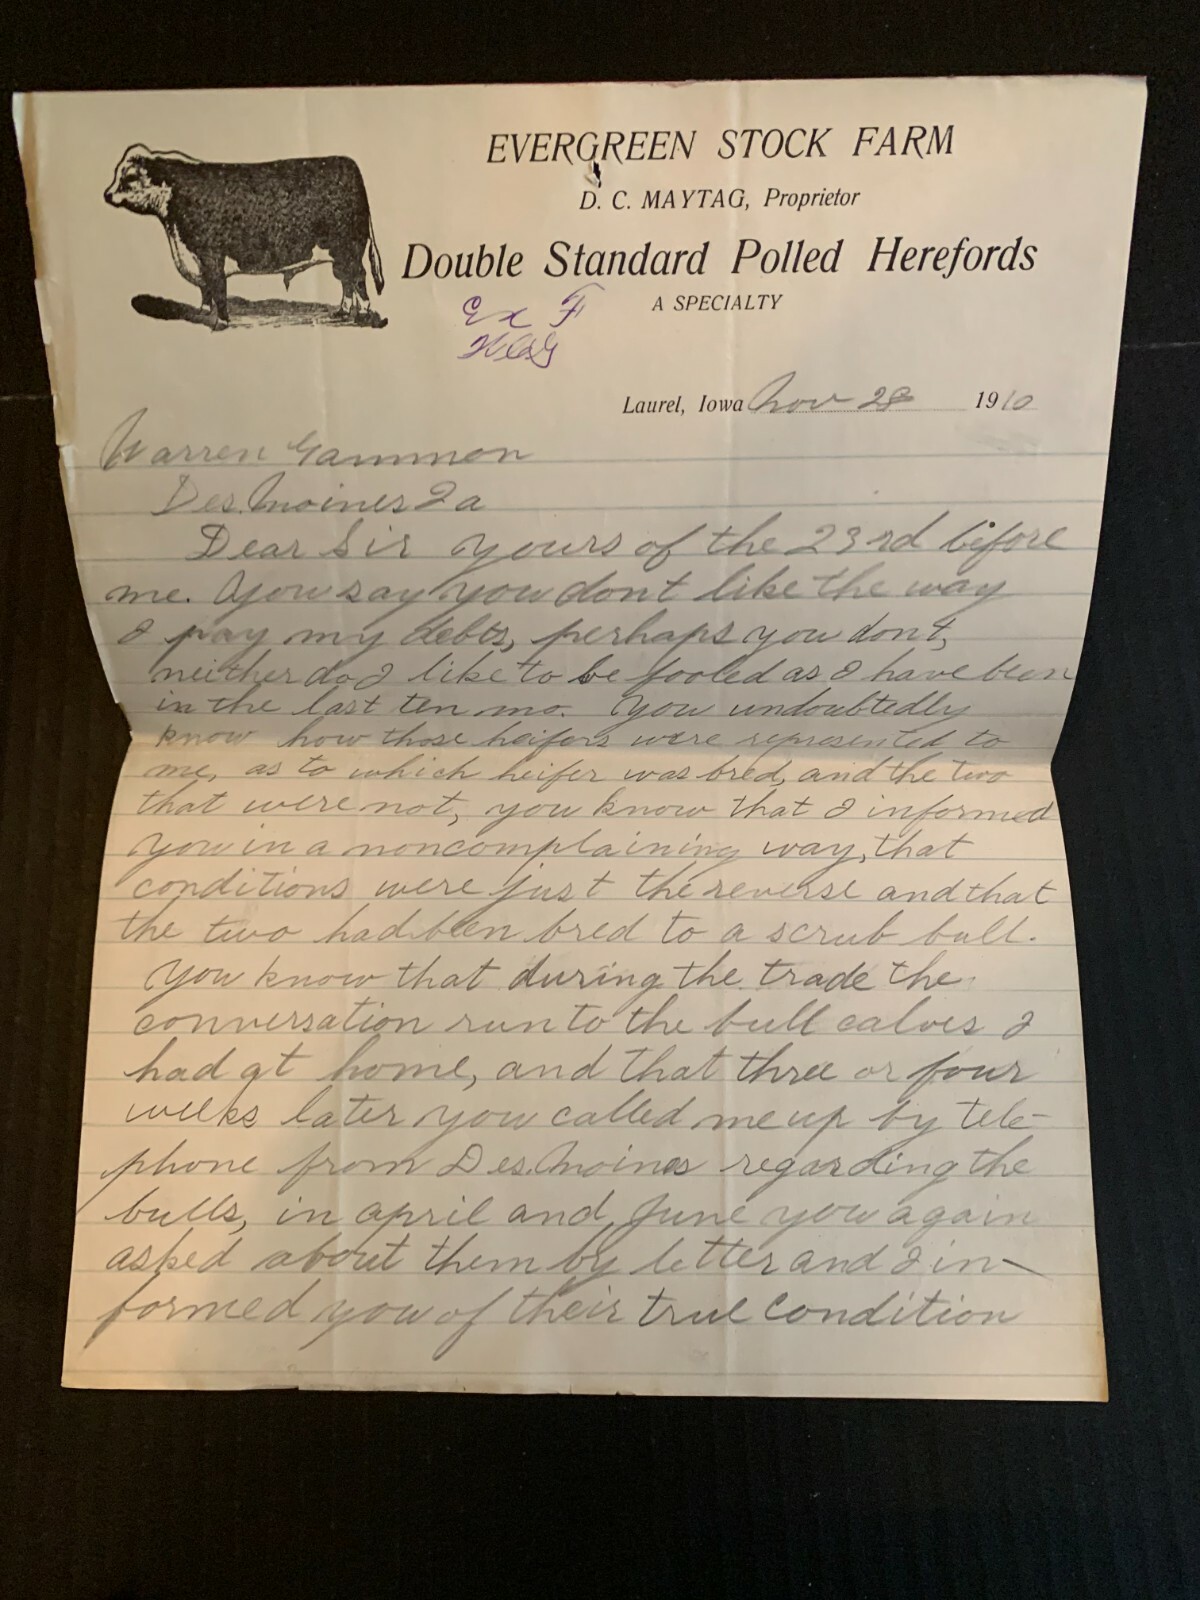 EVERGREEN STOCK FARM
D. C. MAYTAG, Proprietor
Double Standard Polled Herefords
A SPECIALTY
Ex F
Laurel, Iowa Nov 28 1910
Warren Gammon
Des Moines Ia
Dear Sir yours of the 23rd before
me. You say you dont like the way
I pay my debts, perhaps you dont,
neither do I like to be fooled as I have been
in the last ten mo. You undoubtedly
know how those heifers were represented to
me, as to which heifer was bred, and the two
that were not, you know that I informed
you in a noncomplaining way, that
conditions were just the reverse and that
the two had been bred to a scrub bull.
You know that during the trade the
conversation run to the bull calves I
had at home, and that three or four
weeks later you called me up by tele-
phone from Des Moines regarding the
bulls, in april and June you again
asked about them by letter and I in-
formed you of their true condition